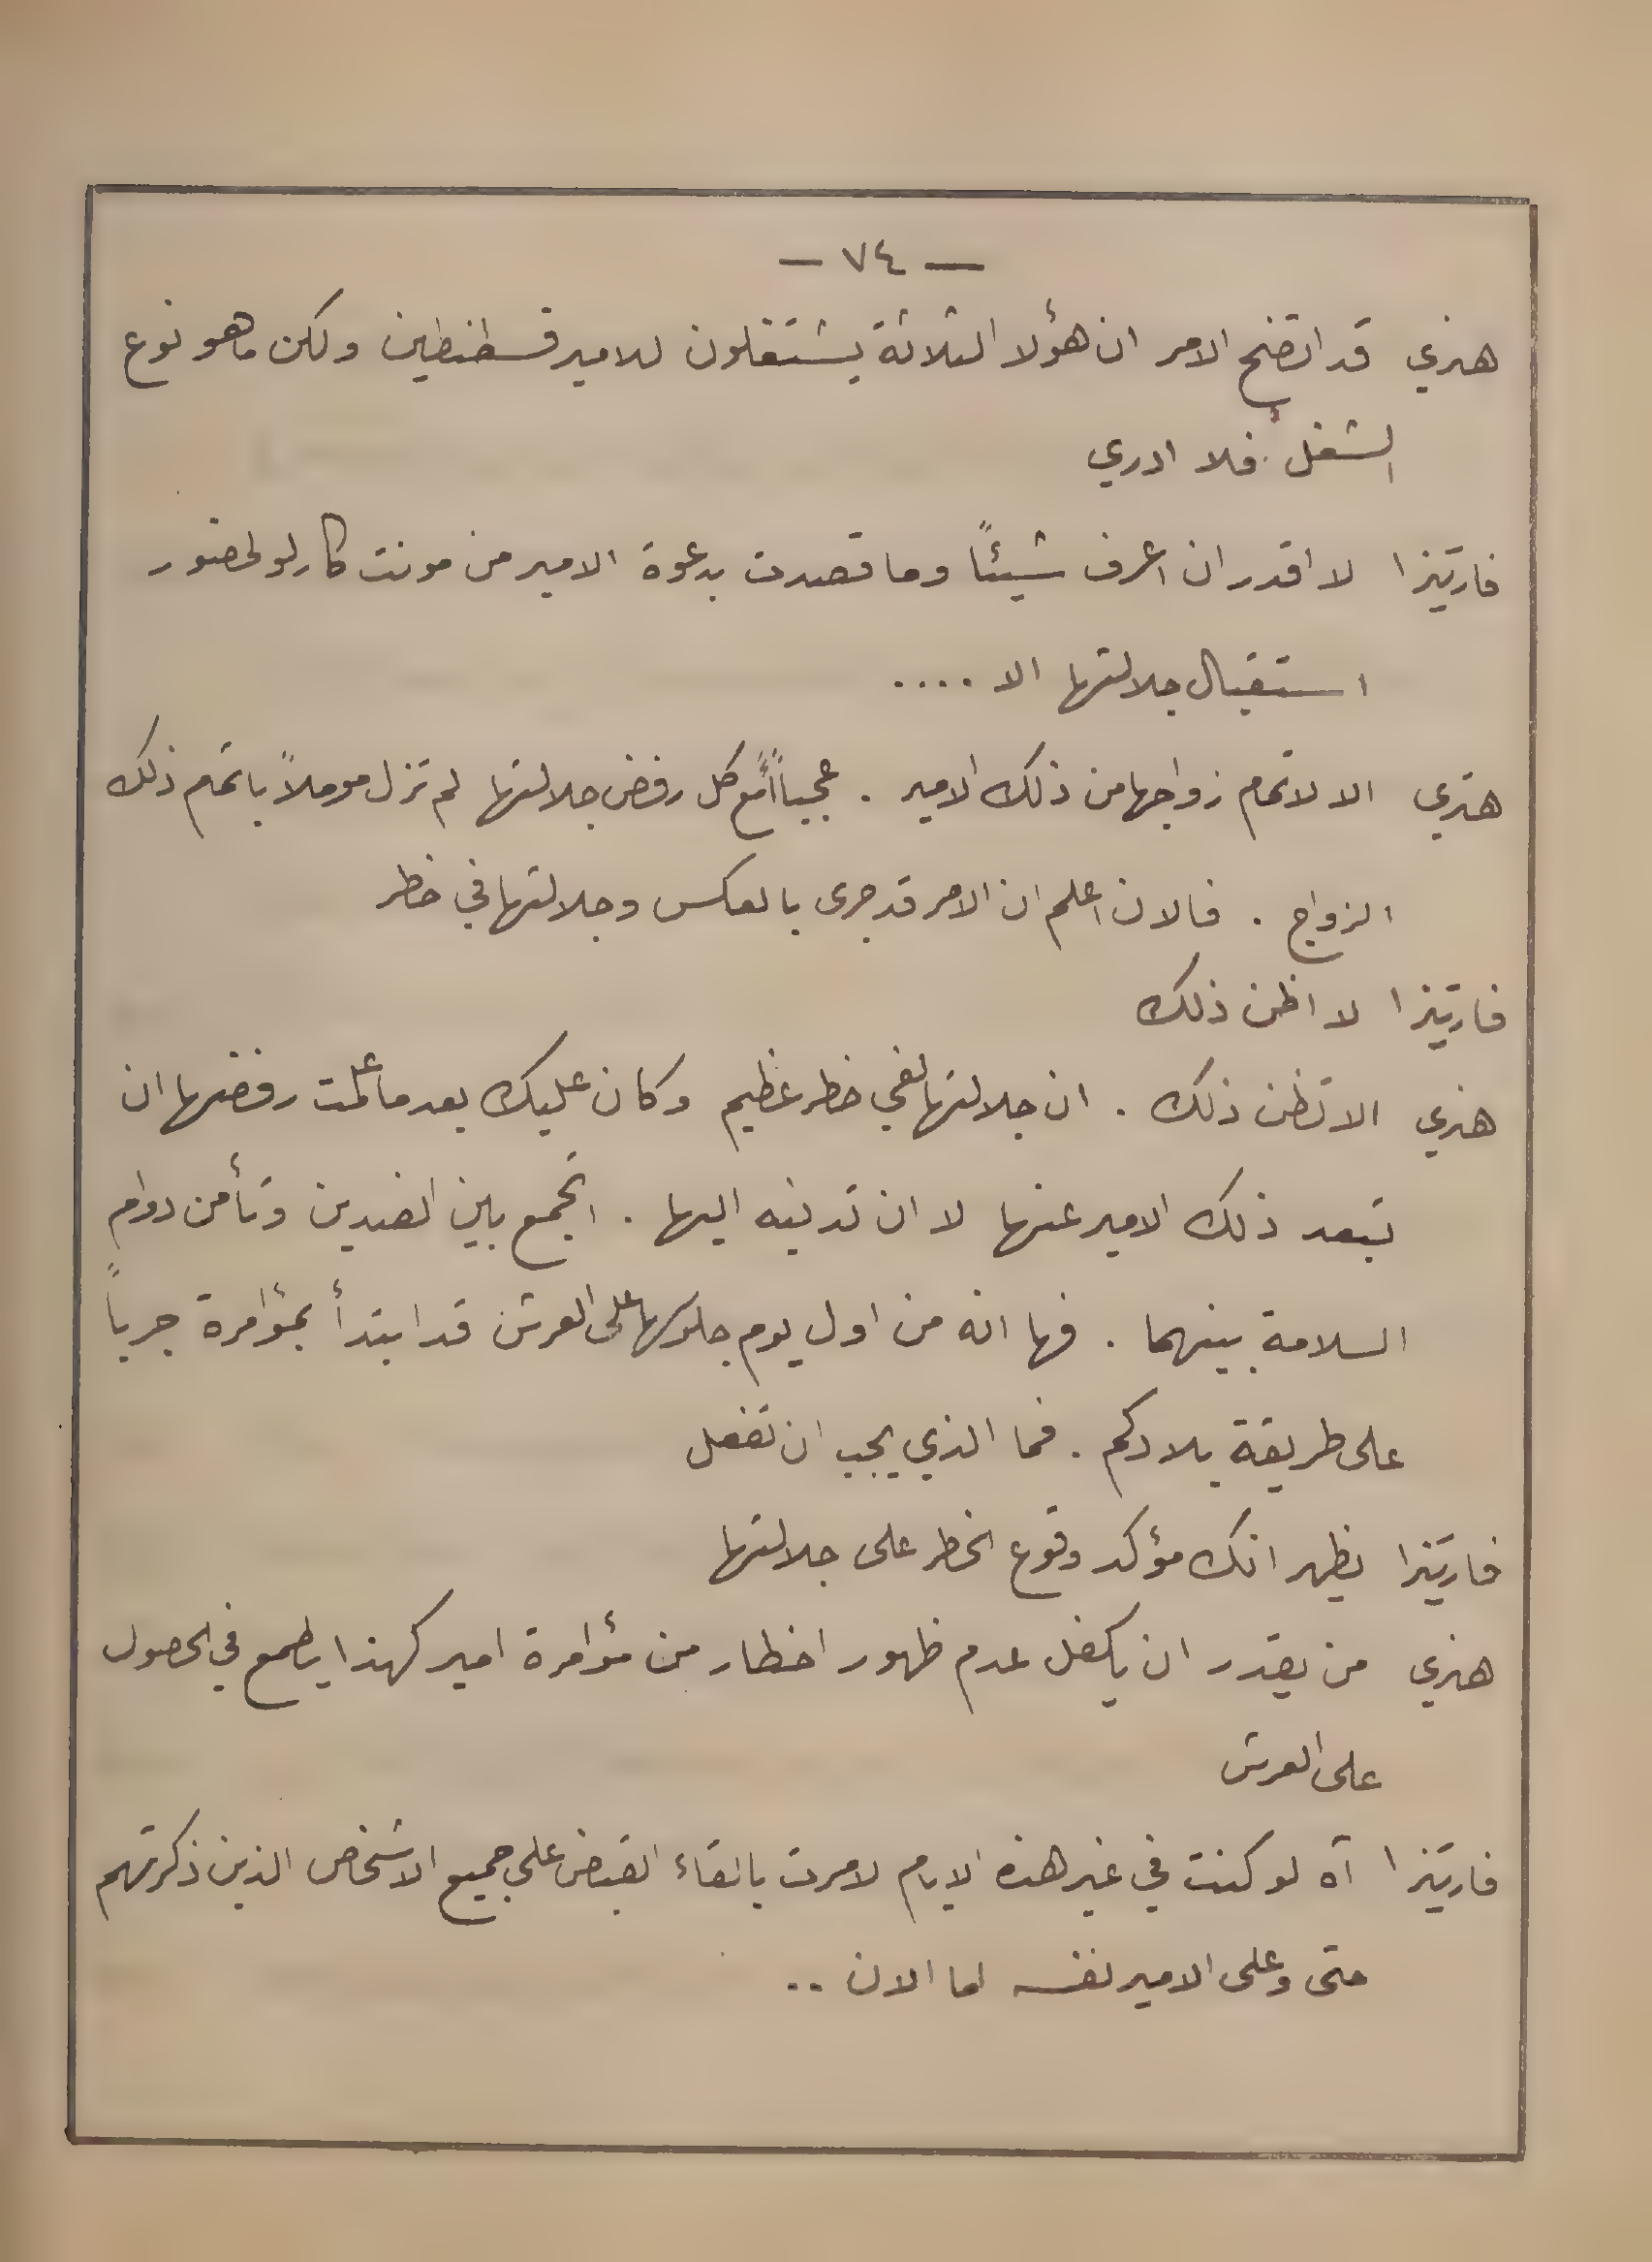 — ٧٤ —
هنري قد اتضح الامر ان هؤلا الثلاثة يشتغلون للامير قسطنطين ولكن ما هو نوع
الشغل فلا ادري
فارتيزا لا اقدر ان اعرف شيئًا وما قصدت بدعوة الامير من مونت كارلو لحضور
استقبال جلالتها الا ....
هنري الا لاتمام زواجها من ذلك الامير . عجباً أمع كل رفض جلالتها لم تزل موملاً باتمام ذلك
الزواج . فالان اعلم ان الامر قد جرى بالعكس وجلالتها في خطر
فارتيزا لا اظن ذلك
هنري الا تظن ذلك . ان جلالتها لفي خطر عظيم وكان عليك بعد ما علمت رفضها ان
تبعد ذلك الامير عنها لا ان تدنيه اليها . اتجمع بين الضدين وتأمن دوام
السلامة بينهما . فها انه من اول يوم جلوسها على العرش قد ابتدأ بمؤامرة جرياً
على طريقة بلادكم . فما الذي يجب ان تفعل
فارتيزا يظهر انك مؤكد وقوع الخطر على جلالتها
هنري من يقدر ان يكفل عدم ظهور اخطار من مؤامرة امير كهذا يطمع في الحصول
على العرش
فارتيزا آه لو كنت في غير هذه الايام لامرت بالقاء القبض على جميع الاشخاص الذين ذكرتهم
حتى وعلى الامير نفسه اما الان ..